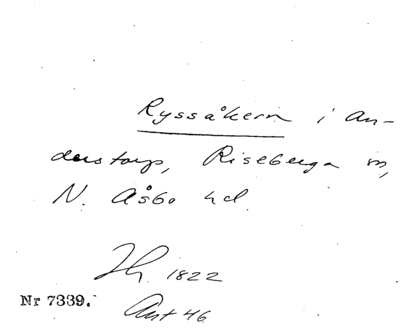 Ryssåkern i An-
derstorp, Riseberga sn,
N. Åsbo hd.
Jh. 1822
Nr 7339.
Ant 46